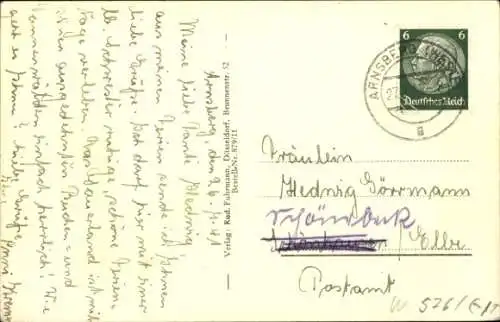 Arnsberg, den 26. 7. 41
Meine liebe Tante Hedwig!
aus meinen Ferien sende ich Ihnen
liebe Grüße. Ich darf hier mit einer
lb. Schwester ruhige, schöne Ferien-
tage verleben. Das Sauerland ist mit
seinen ausgedehnten Buchen- und
Tannenwäldern einfach herrlich! Wie
geht es Ihnen? Liebe Grüße
Ihre
Verlag: Rud. Fuhrmann, Düsseldorf, Brunnenstr. 12
Bestell-Nr. 879/11
6 6
Deutsches Reich
ARNSBERG (WESTF)
27
a
Fräulein
Hedwig Görrmann
Schönebeck
/ Elbe
Postamt
W 526/